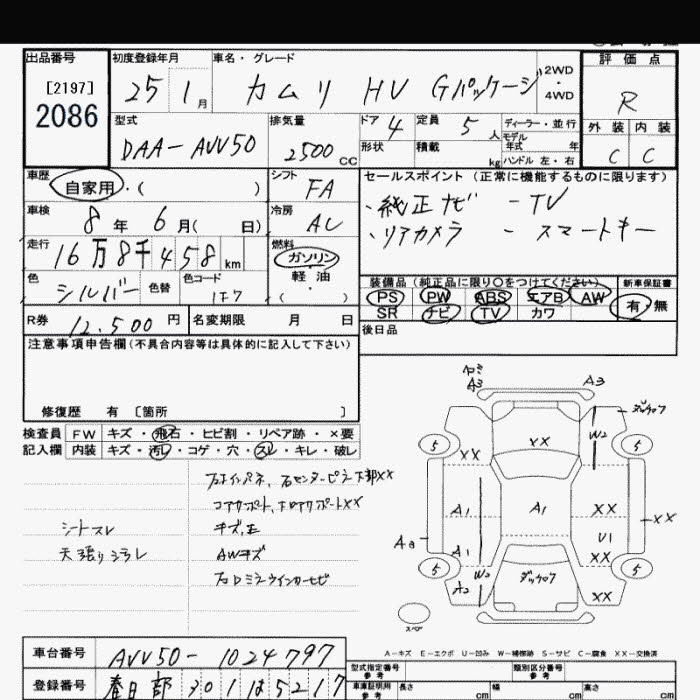 出品番号
[2197]
2086
初度登録年月
25 1月
車名・グレード
カムリ HV Gパッケージ
2WD
4WD
評価点
R
外装 内装
C C
型式
DAA-AVV50
排気量
2500cc
ドア 4
形状
定員 5人
積載 kg
ディーラー・並行
モデル
年式 年
ハンドル 左・右
車歴
自家用・( )
シフト
FA
車検
8年 6月( 日)
冷房
AC
走行
16万8千458km
燃料
ガソリン
軽油
( )
色
シルバー
色替
色コード
1F7
R券 12,500円
名変期限 月 日
セールスポイント(正常に機能するものに限ります)
・純正ナビ -TV
・リアカメラ -スマートキー
装備品(純正品に限り○をつけてください)
PS PW ABS エアB AW
SR ナビ TV カワ
新車保証書
有・無
後日品
注意事項申告欄(不具合内容等は具体的に記入して下さい)
修復歴 有 [箇所 ]
検査員 FW キズ・飛石・ヒビ割・リペア跡・×要
記入欄 内装 キズ・汚レ・コゲ・穴・スレ・キレ・破レ
右インパネ、右センターピラー下部XX
コアサポート、
シートスレ
天張りシミレ
AWキズ
右ロミラーウインカー
A3
A3
W2
5
5
XX
XX
A1
A1
XX
XX
U1
A3
A1
XX
5
W2
5
A2
XX
スペア
A-キズ E-エクボ U-凹み W-補修跡 S-サビ C-腐食 XX-交換済
車台番号
AVV50-1024797
登録番号
春日部 301 ほ 5217
型式指定番号
参考
類別区分番号
参考
車庫証明用
参考
長さ cm
幅 cm
高さ cm